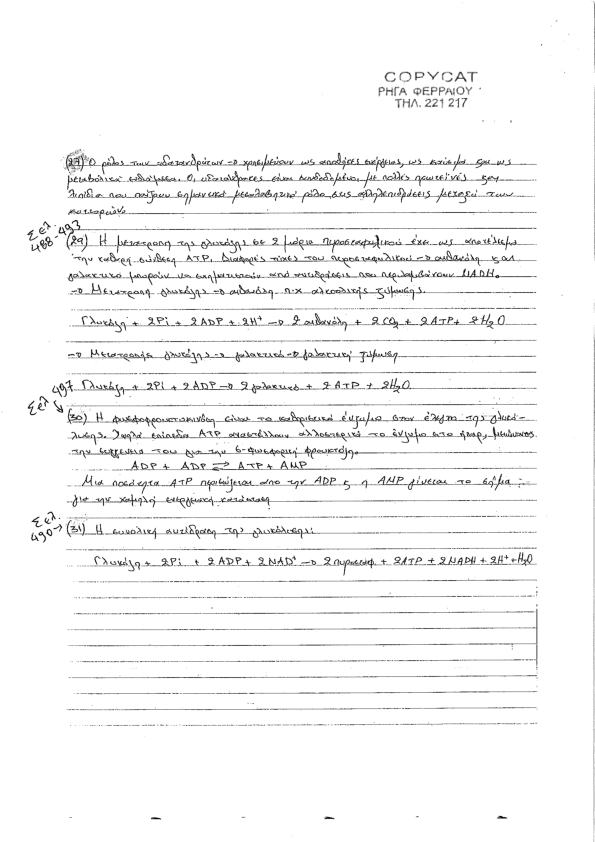 COPYCAT
ΡΗΓΑ ΦΕΡΡΑΙΟΥ
ΤΗΛ. 221 217
(27) Ο ρόλος των υδατανθράκων → χρησιμεύουν ως αποθήκες ενέργειας, ως καύσιμα και ως
μεταβολικά ενδιάμεσα. Οι υδατάνθρακες είναι συνδεδεμένοι με πολλές πρωτεΐνες και
λιπίδια που παίζουν σημαντικό μεσολαβητικό ρόλο στις αλληλεπιδράσεις μεταξύ των
κυττάρων.
Σελ. 488-493
(29) Η μετατροπή της γλυκόζης σε 2 μόρια πυροσταφυλικού έχει ως αποτέλεσμα
την καθαρή σύνθεση ATP. Διαφορές τύχες του πυροσταφυλικού → αιθανόλη και
γαλακτικό μπορούν να σχηματιστούν από αντιδράσεις που περιλαμβάνουν NADH.
→ Μετατροπή γλυκόζης → αιθανόλη π.χ αλκοολικής ζύμωσης.
Γλυκόζη + 2Pi + 2ADP + 2H⁺ → 2 αιθανόλη + 2CO₂ + 2ATP + 2H₂O
→ Μετατροπή γλυκόζης → γαλακτικό → γαλακτική ζύμωση
497 Γλυκόζη + 2Pi + 2ADP → 2 γαλακτικό + 2ATP + 2H₂O
Σελ
(30) Η φωσφοφρουκτοκινάση είναι το καθοριστικό ένζυμο στον έλεγχο της γλυκό-
λυσης. Υψηλά επίπεδα ATP αναστέλλουν αλλοστερικά το ένζυμο στο ήπαρ, μειώνοντας
την συγγένεια του για την 6-φωσφορική φρουκτόζη.
ADP + ADP ⇌ ATP + AMP
Μια ποσότητα ATP περισώζεται από την ADP ς η AMP γίνεται το σήμα
για την χαμηλή ενεργειακή κατάσταση
Σελ. 490→ (31) Η συνολική αντίδραση της γλυκόλυσης:
Γλυκόζη + 2Pi + 2ADP + 2NAD⁺ → 2 πυροσταφ. + 2ATP + 2NADH + 2H⁺ + H₂O